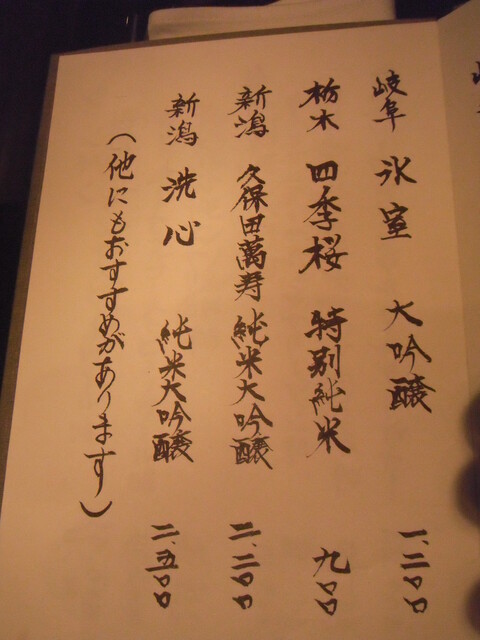 岐阜 氷室 大吟醸 一、二〇〇
栃木 四季桜 特別純米 九〇〇
新潟 久保田萬寿 純米大吟醸 二、二〇〇
新潟 洗心 純米大吟醸 二、五〇〇
(他にもおすすめがあります)